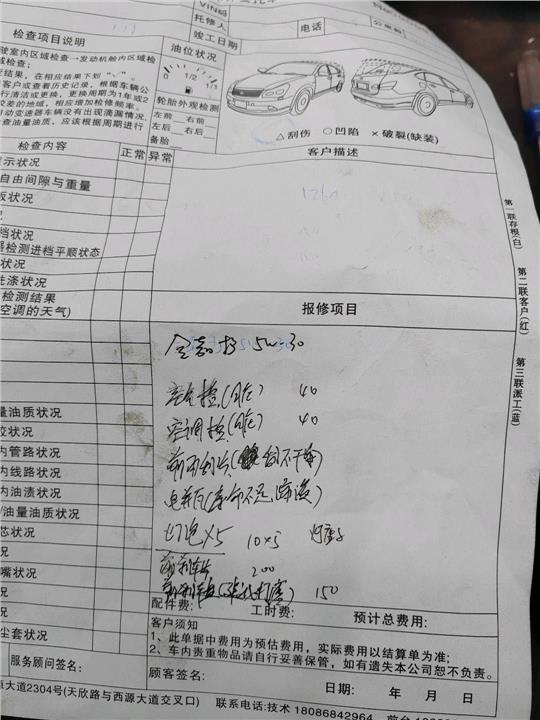 VIN码
托修人
电话
竣工日期
检查项目说明
油位状况
驶室内区域检查→发动机舱内区域
检查:
结果，在相应结果下划“√”。
客户或查看历史记录，根据车辆公
行清洁或更换，更换周期为1年或2
较差的地域，相应增加检修频率。
自动变速器车辆没有出现滴漏情况，
查油量油质，应该根据周期进行
0 1/2 1/1
轮胎外观检测
左前 右前
左后 右后
备胎
△刮伤 ○凹陷 ×破裂(缺装)
检查内容
正常
异常
客户描述
示状况
自由间隙与重量
板状况
档状况
器检测进档平顺状态
状况
洗涤状况
检测结果
空调的天气)
第一联存根(白)
第二联客户(红)
第三联派工(蓝)
报修项目
5W30
空气格(自在) 40
空调格(自在) 40
前雨刮片(刮不干净)
电瓶(寿命不足
灯泡×5 10×5
前刹车片 200
150
量油质状况
皮状况
内管路状况
内线路状况
内油渍状况
/油量油质状况
芯状况
况
嘴状况
况
尘套状况
配件费:
工时费:
预计总费用:
客户须知
1、此单据中费用为预估费用，实际费用以结算单为准;
2、车内贵重物品请自行妥善保管，如有遗失本公司恕不负责。
服务顾问签名:
顾客签名:
日期: 年 月 日
源大道2304号(天欣路与西源大道交叉口)
联系电话:技术 18086842964
前台